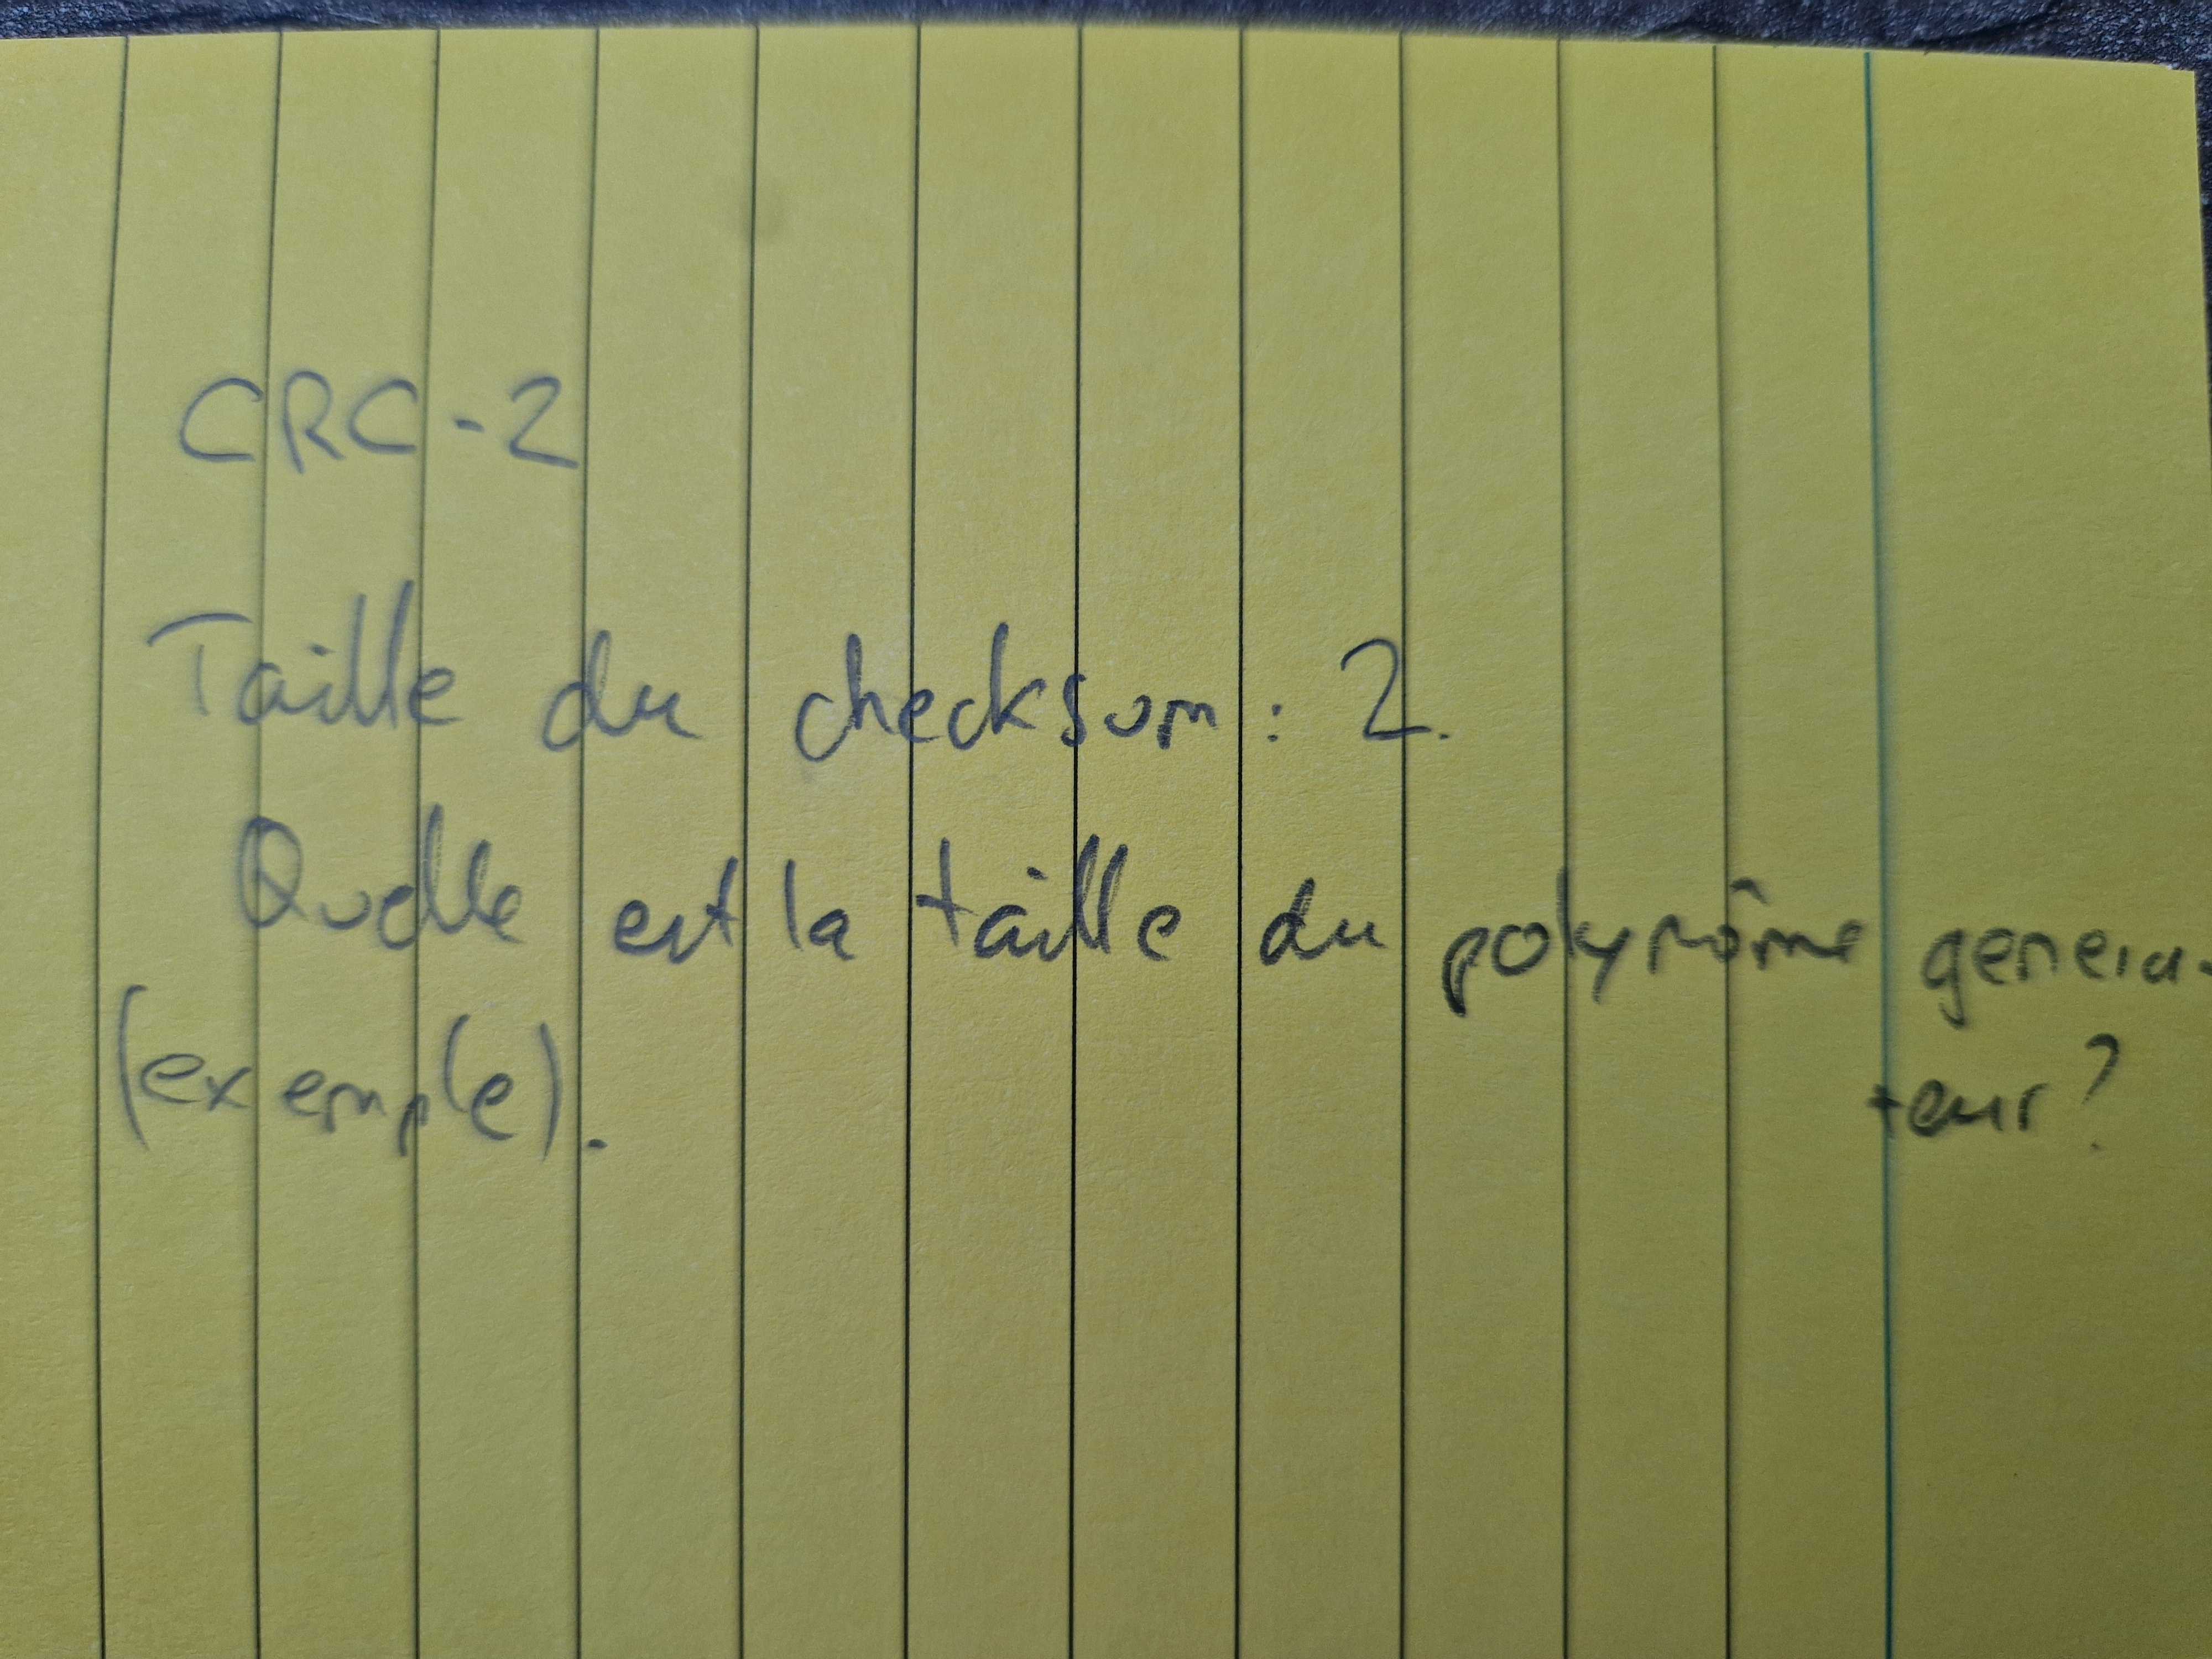 CRC-2
Taille du checksum : 2.
Quelle est la taille du polynôme genera-
teur ?
(exemple).